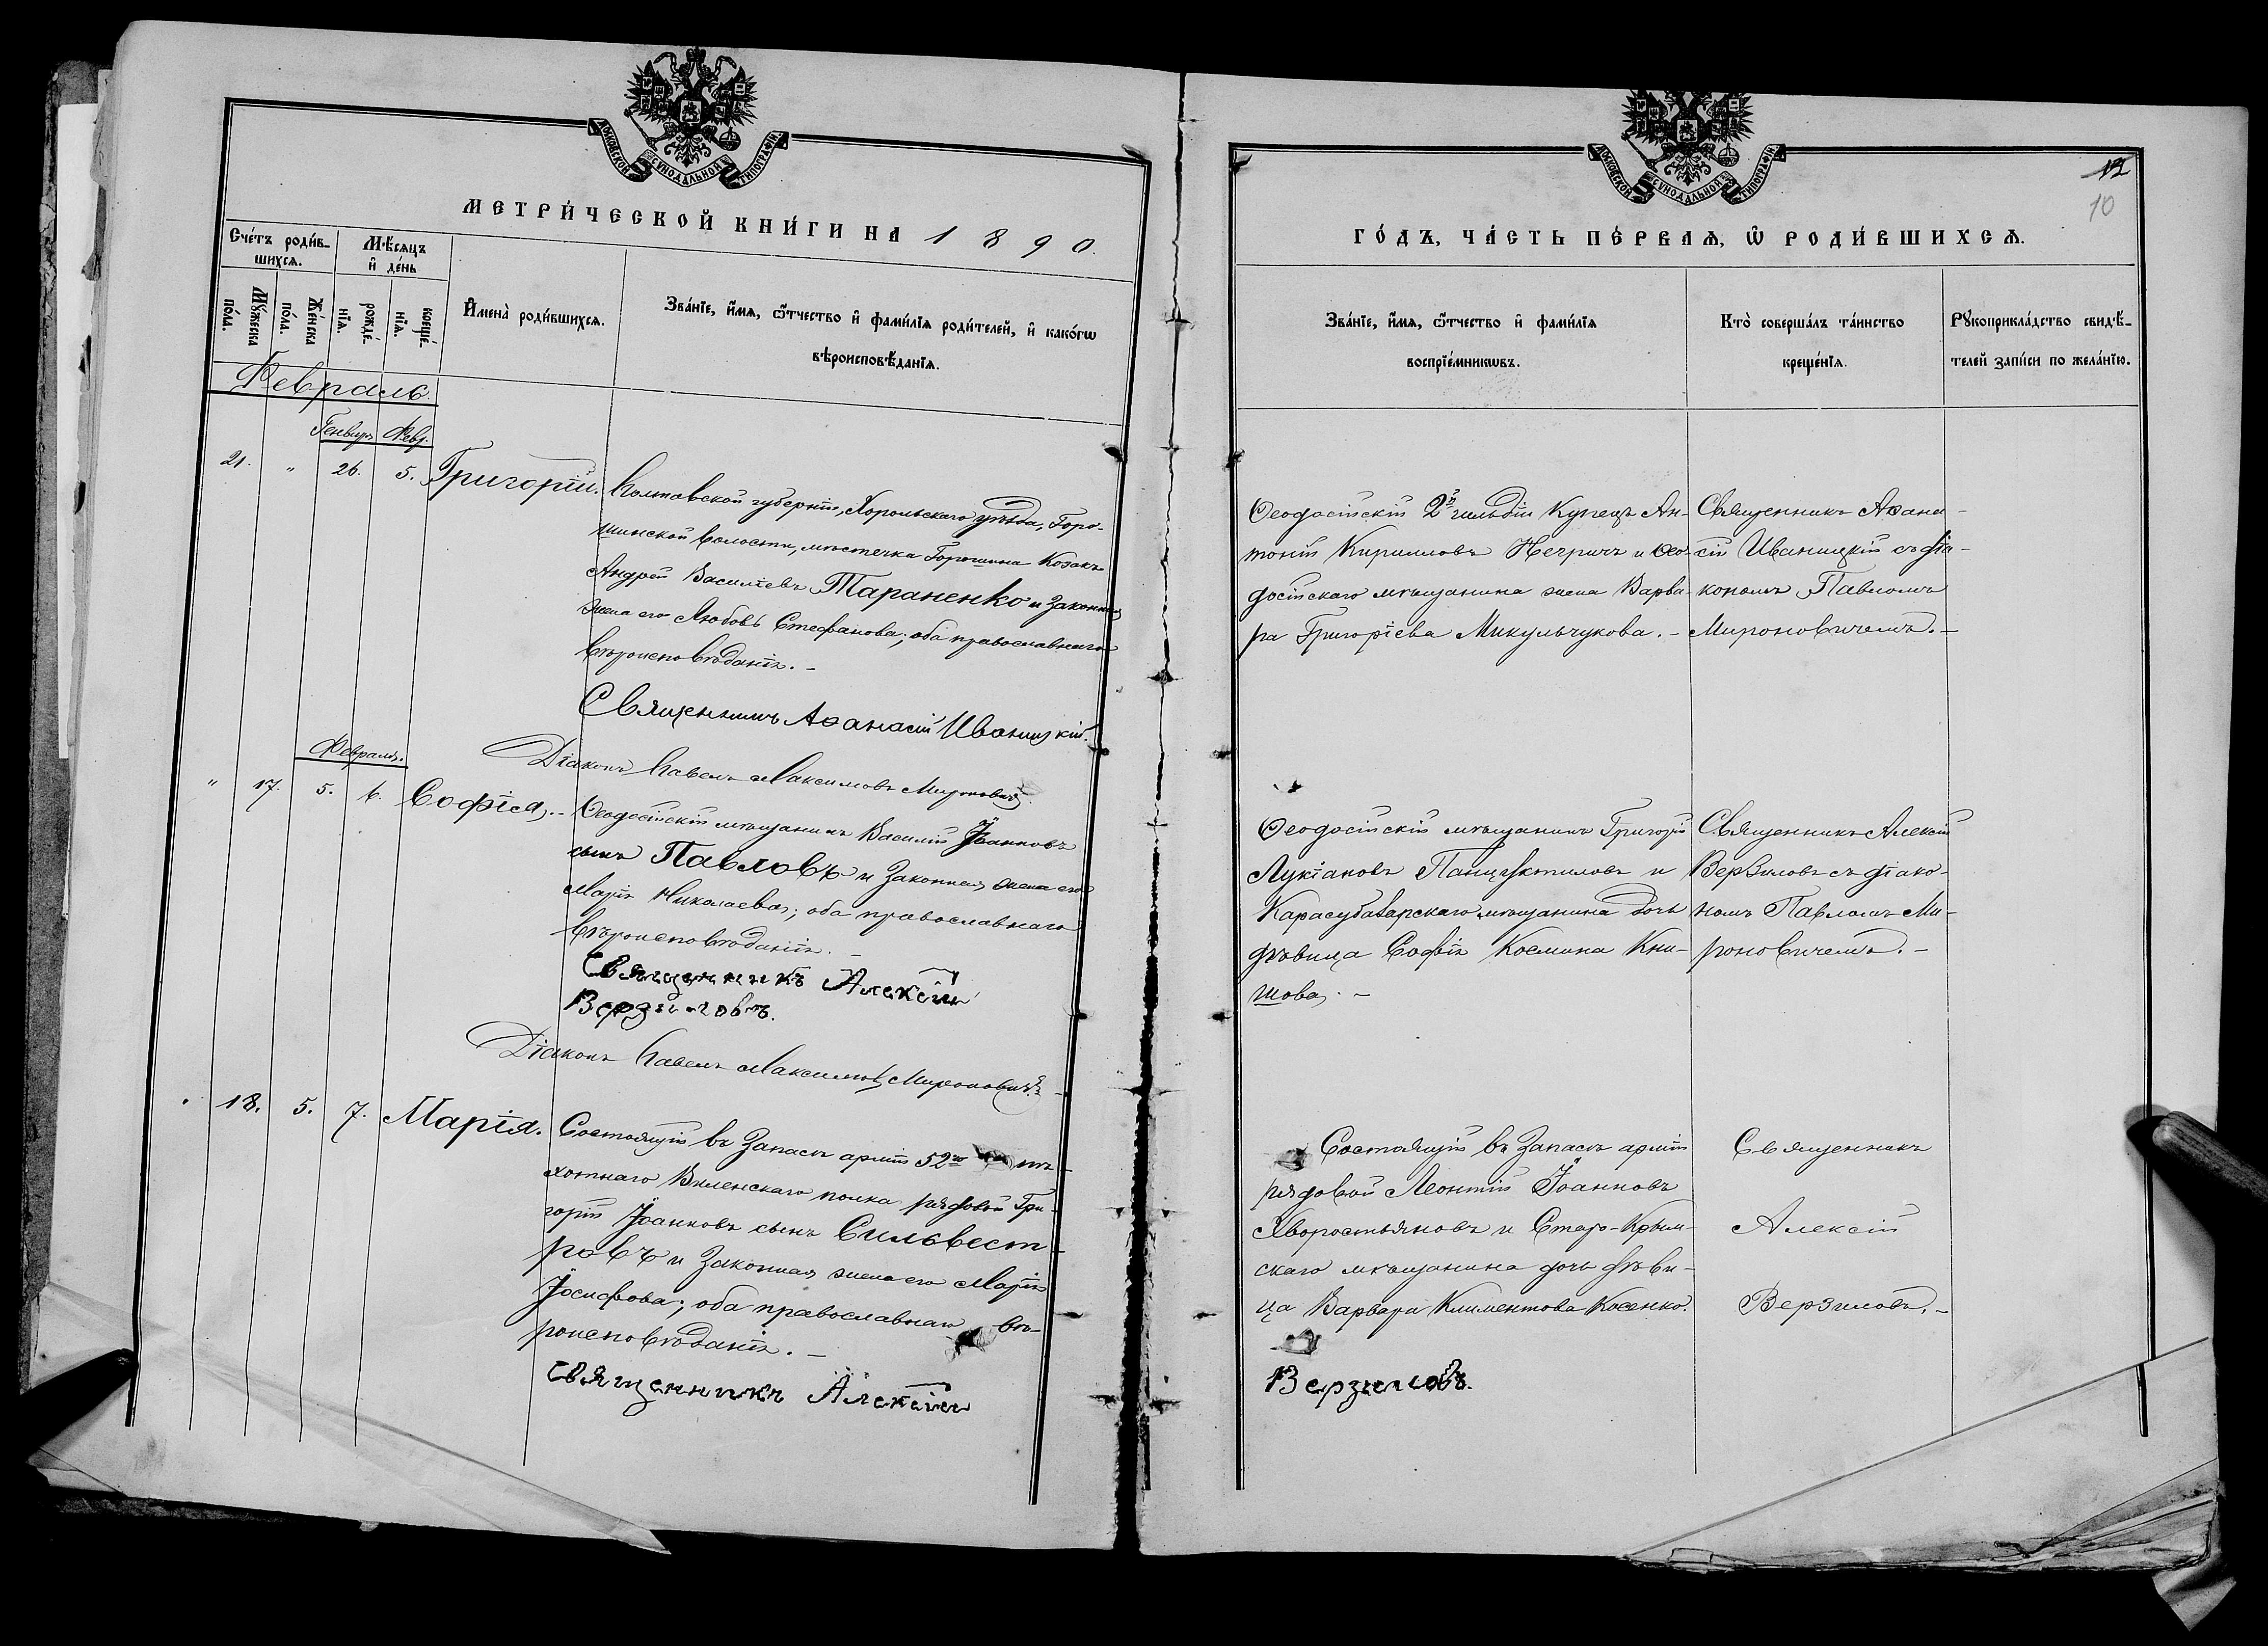 МОСКОВСКОЙ СѴНОДАЛЬНОЙ ТИПОГРАФІИ
МЕТРИ́ЧЕСКОЙ КНИ́ГИ НА 1890.
Сче́тъ роди́в-
шихсѧ.
Мѣ́сѧцъ
и҆ де́нь
Мꙋ́жеска
по́ла.
Же́нска
по́ла.
рожде́-
нїѧ.
креще́-
нїѧ.
И҆мена̀ роди́вшихсѧ.
Зва́нїе, и҆́мѧ, ѻ҆́тчество и҆ фами́лїѧ роди́телей, и҆ како́гѡ
вѣроисповѣ́данїѧ.
Февраль.
Генвар. Февр.
21. " 26. 5. Григорій. Полтавской губерніи, Хорольскаго уѣзда, Горо-
шинской волости, мѣстечка Горошина Козакъ
Андрей Василіевъ Тараненко и законная
жена его Любовь Стефанова; оба православнаго
вѣроисповѣданія. –
Священникъ Аѳанасій Иваницкій.
Діаконъ Павелъ Максимовъ Мироновичъ.
Февраля.
" 17. 5. 6. Софія. – Ѳеодосійскій мѣщанинъ Василій Іоанновъ
сынъ Павловъ и законная жена его
Марія Николаева; оба православнаго
вѣроисповѣданія. –
Священникъ Алексій
Верзиловъ.
Діаконъ Павелъ Максимовъ Мироновичъ. –
" 18. 5. 7. Марія. Состоящій въ запасѣ арміи 52го пѣ-
хотнаго Виленскаго полка рядовой Гри-
горій Іоанновъ сынъ Сильвест-
ровъ и законная жена его Марія
Іосифова; оба православнаго вѣ-
роисповѣданія. –
Священникъ Алексій
МОСКОВСКОЙ СѴНОДАЛЬНОЙ ТИПОГРАФІИ
12
10
ГО́ДЪ, ЧА́СТЬ ПЕ́РВАѦ, Ѡ҆ РОДИ́ВШИХСѦ.
Зва́нїе, и҆́мѧ, ѻ҆́тчество и҆ фами́лїѧ
воспрїе́мникѡвъ.
Кто̀ соверша́лъ та́инство
креще́нїѧ.
Рꙋкоприкла́дство свидѣ́-
телей за́писи по жела́нїю.
Ѳеодосійскій 2й гильдіи Купецъ Ан-
тоній Кирилловъ Негричъ и Ѳео-
досійскаго мѣщанина жена Варва-
ра Григоріева Микульчукова. –
Священникъ Аѳана-
сій Иваницкій съ діа-
кономъ Павломъ
Мироновичемъ. –
Ѳеодосійскій мѣщанинъ Григорій
Лукіановъ и
Карасубазарскаго мѣщанина дочь
дѣвица Софія Космина Кни-
шова. –
Священникъ Алексій
Верзиловъ съ діако-
номъ Павломъ Ми-
роновичемъ. –
Состоящій въ запасѣ арміи
рядовой Леонтій Іоанновъ
Хворостьяновъ и Старо-Крым-
скаго мѣщанина дочь дѣви-
ца Варвара Климентова Косенко.
Священникъ
Алексій
Верзиловъ. –
Верзиловъ.